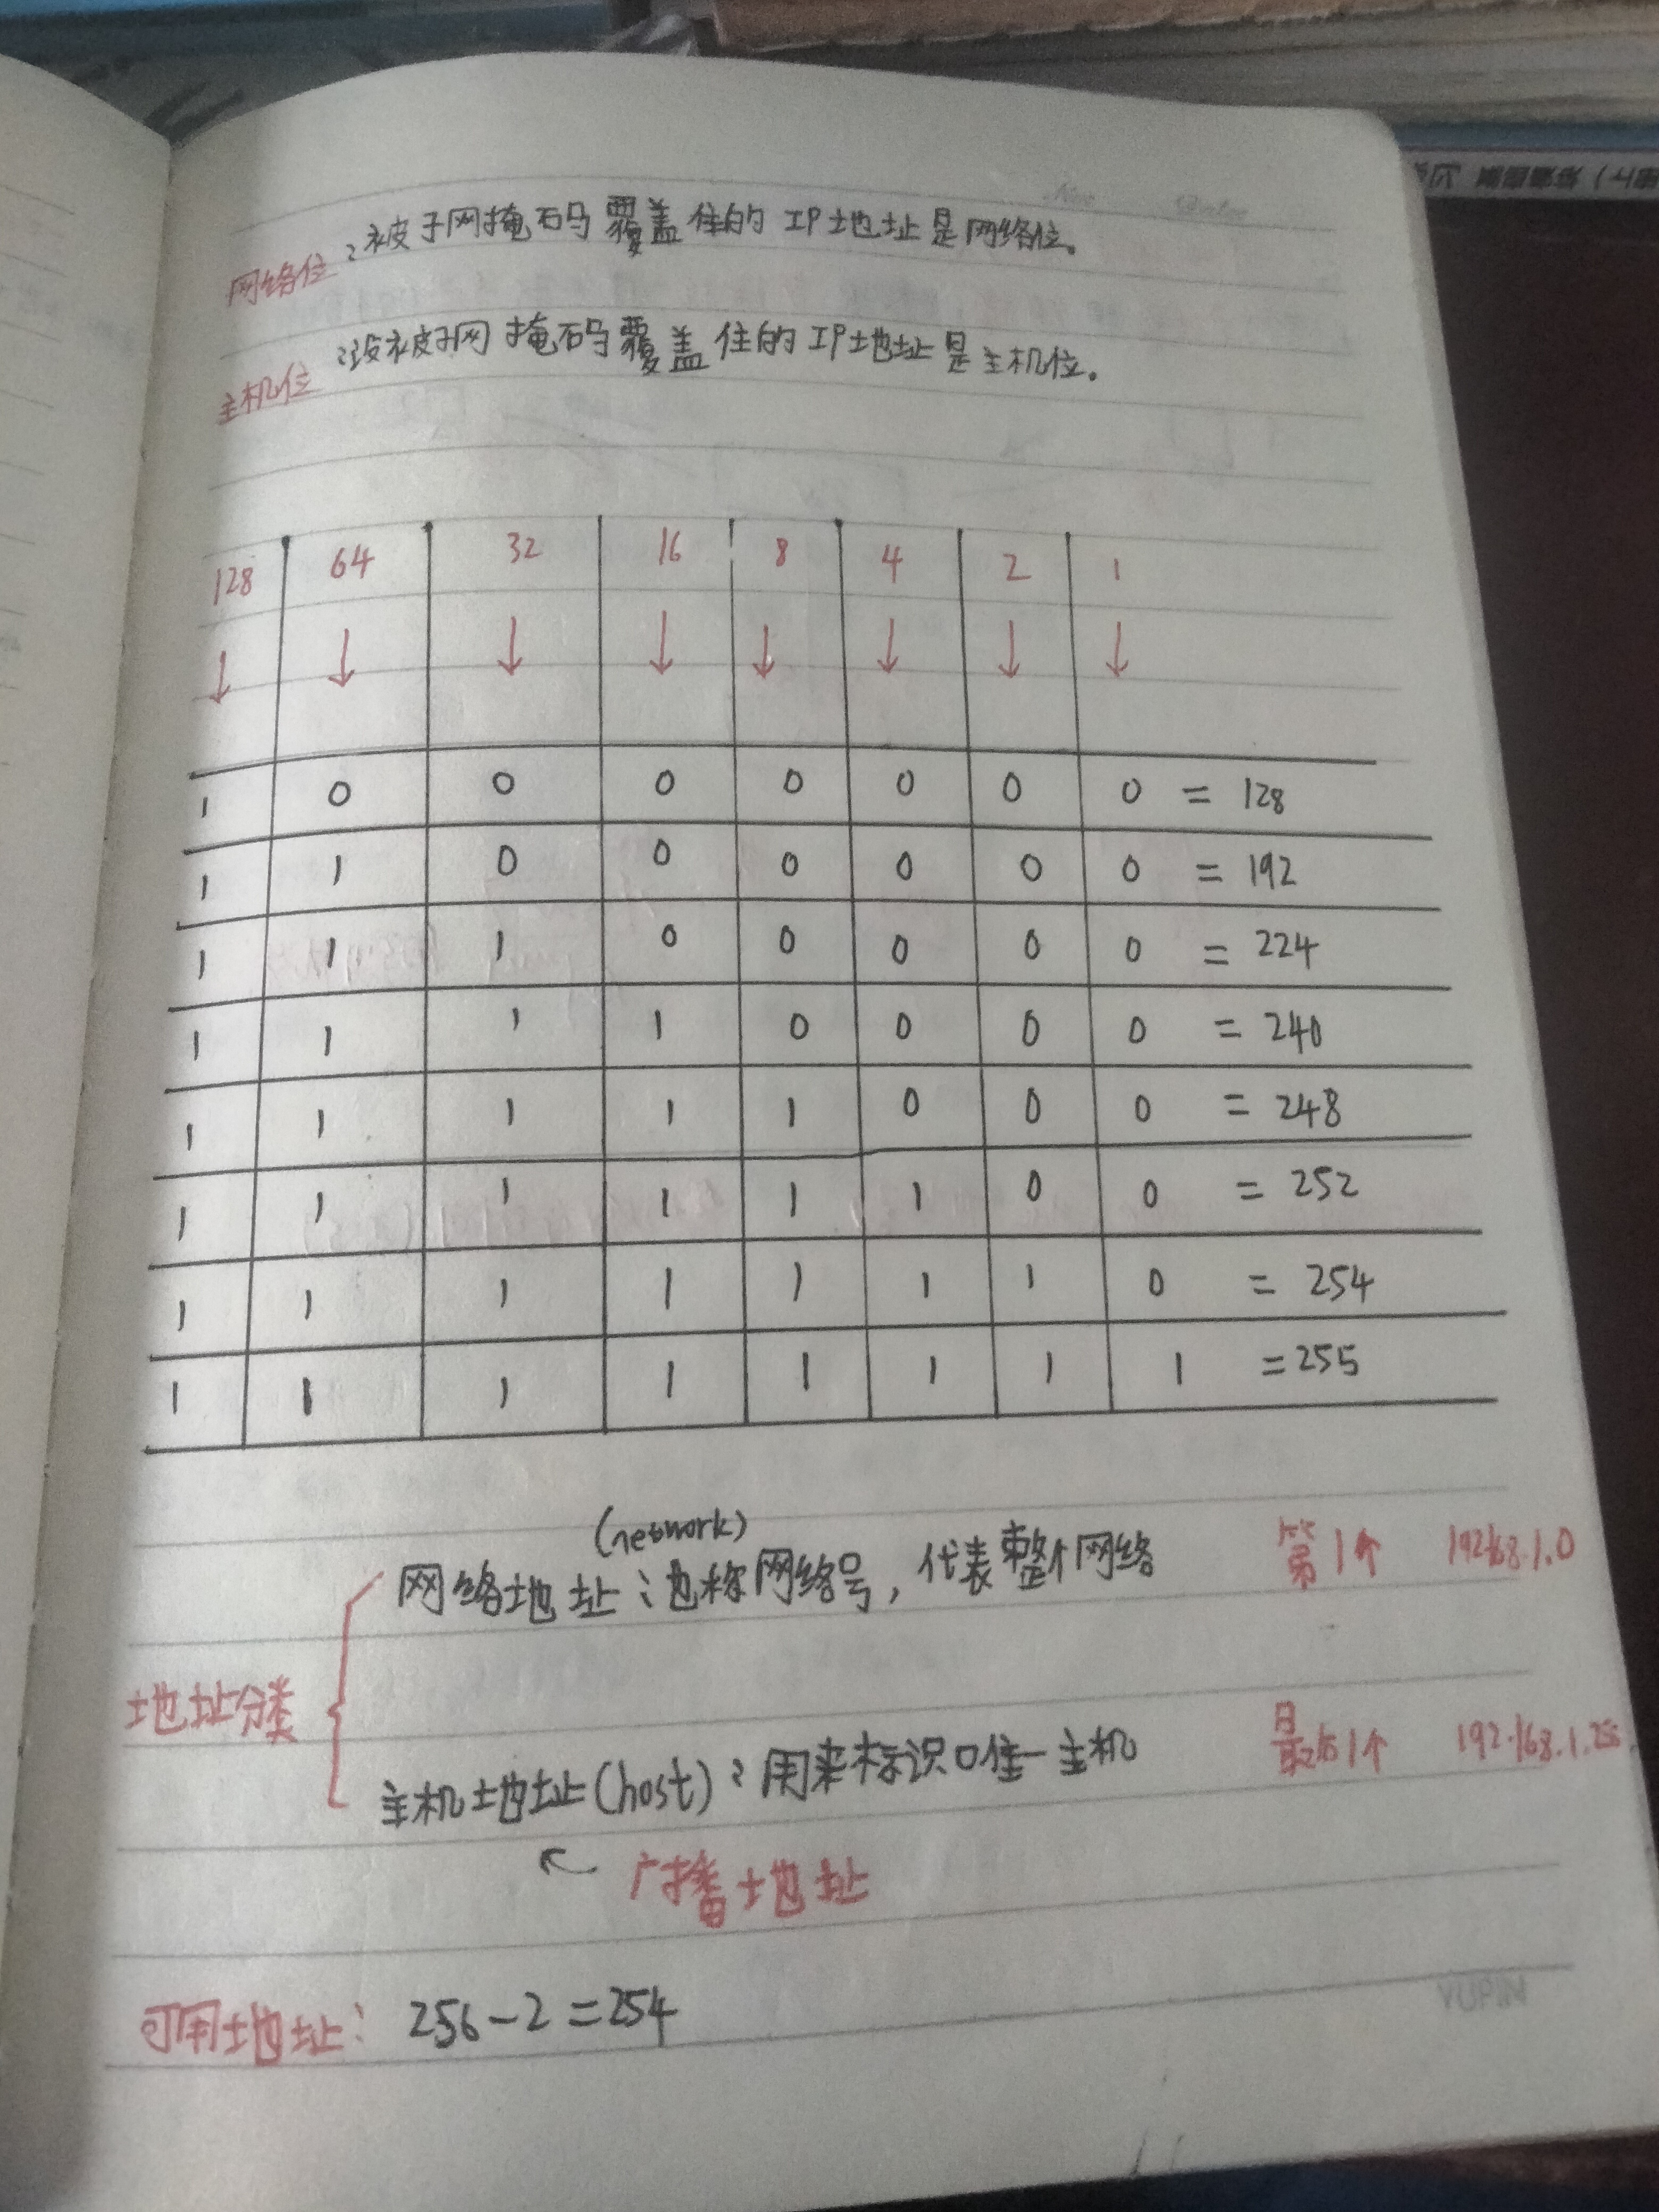 网络位：被子网掩码覆盖住的IP地址是网络位。
主机位：没被子网掩码覆盖住的IP地址是主机位。
128 64 32 16 8 4 2 1
↓ ↓ ↓ ↓ ↓ ↓ ↓ ↓
1 0 0 0 0 0 0 0 = 128
1 1 0 0 0 0 0 0 = 192
1 1 1 0 0 0 0 0 = 224
1 1 1 1 0 0 0 0 = 240
1 1 1 1 1 0 0 0 = 248
1 1 1 1 1 1 0 0 = 252
1 1 1 1 1 1 1 0 = 254
1 1 1 1 1 1 1 1 = 255
(network)
网络地址：也称网络号，代表整个网络 第1个 192.168.1.0
地址分类
主机地址(host)：用来标识唯一主机 最后1个 192.168.1.255
← 广播地址
可用地址：256-2=254
YUPIN